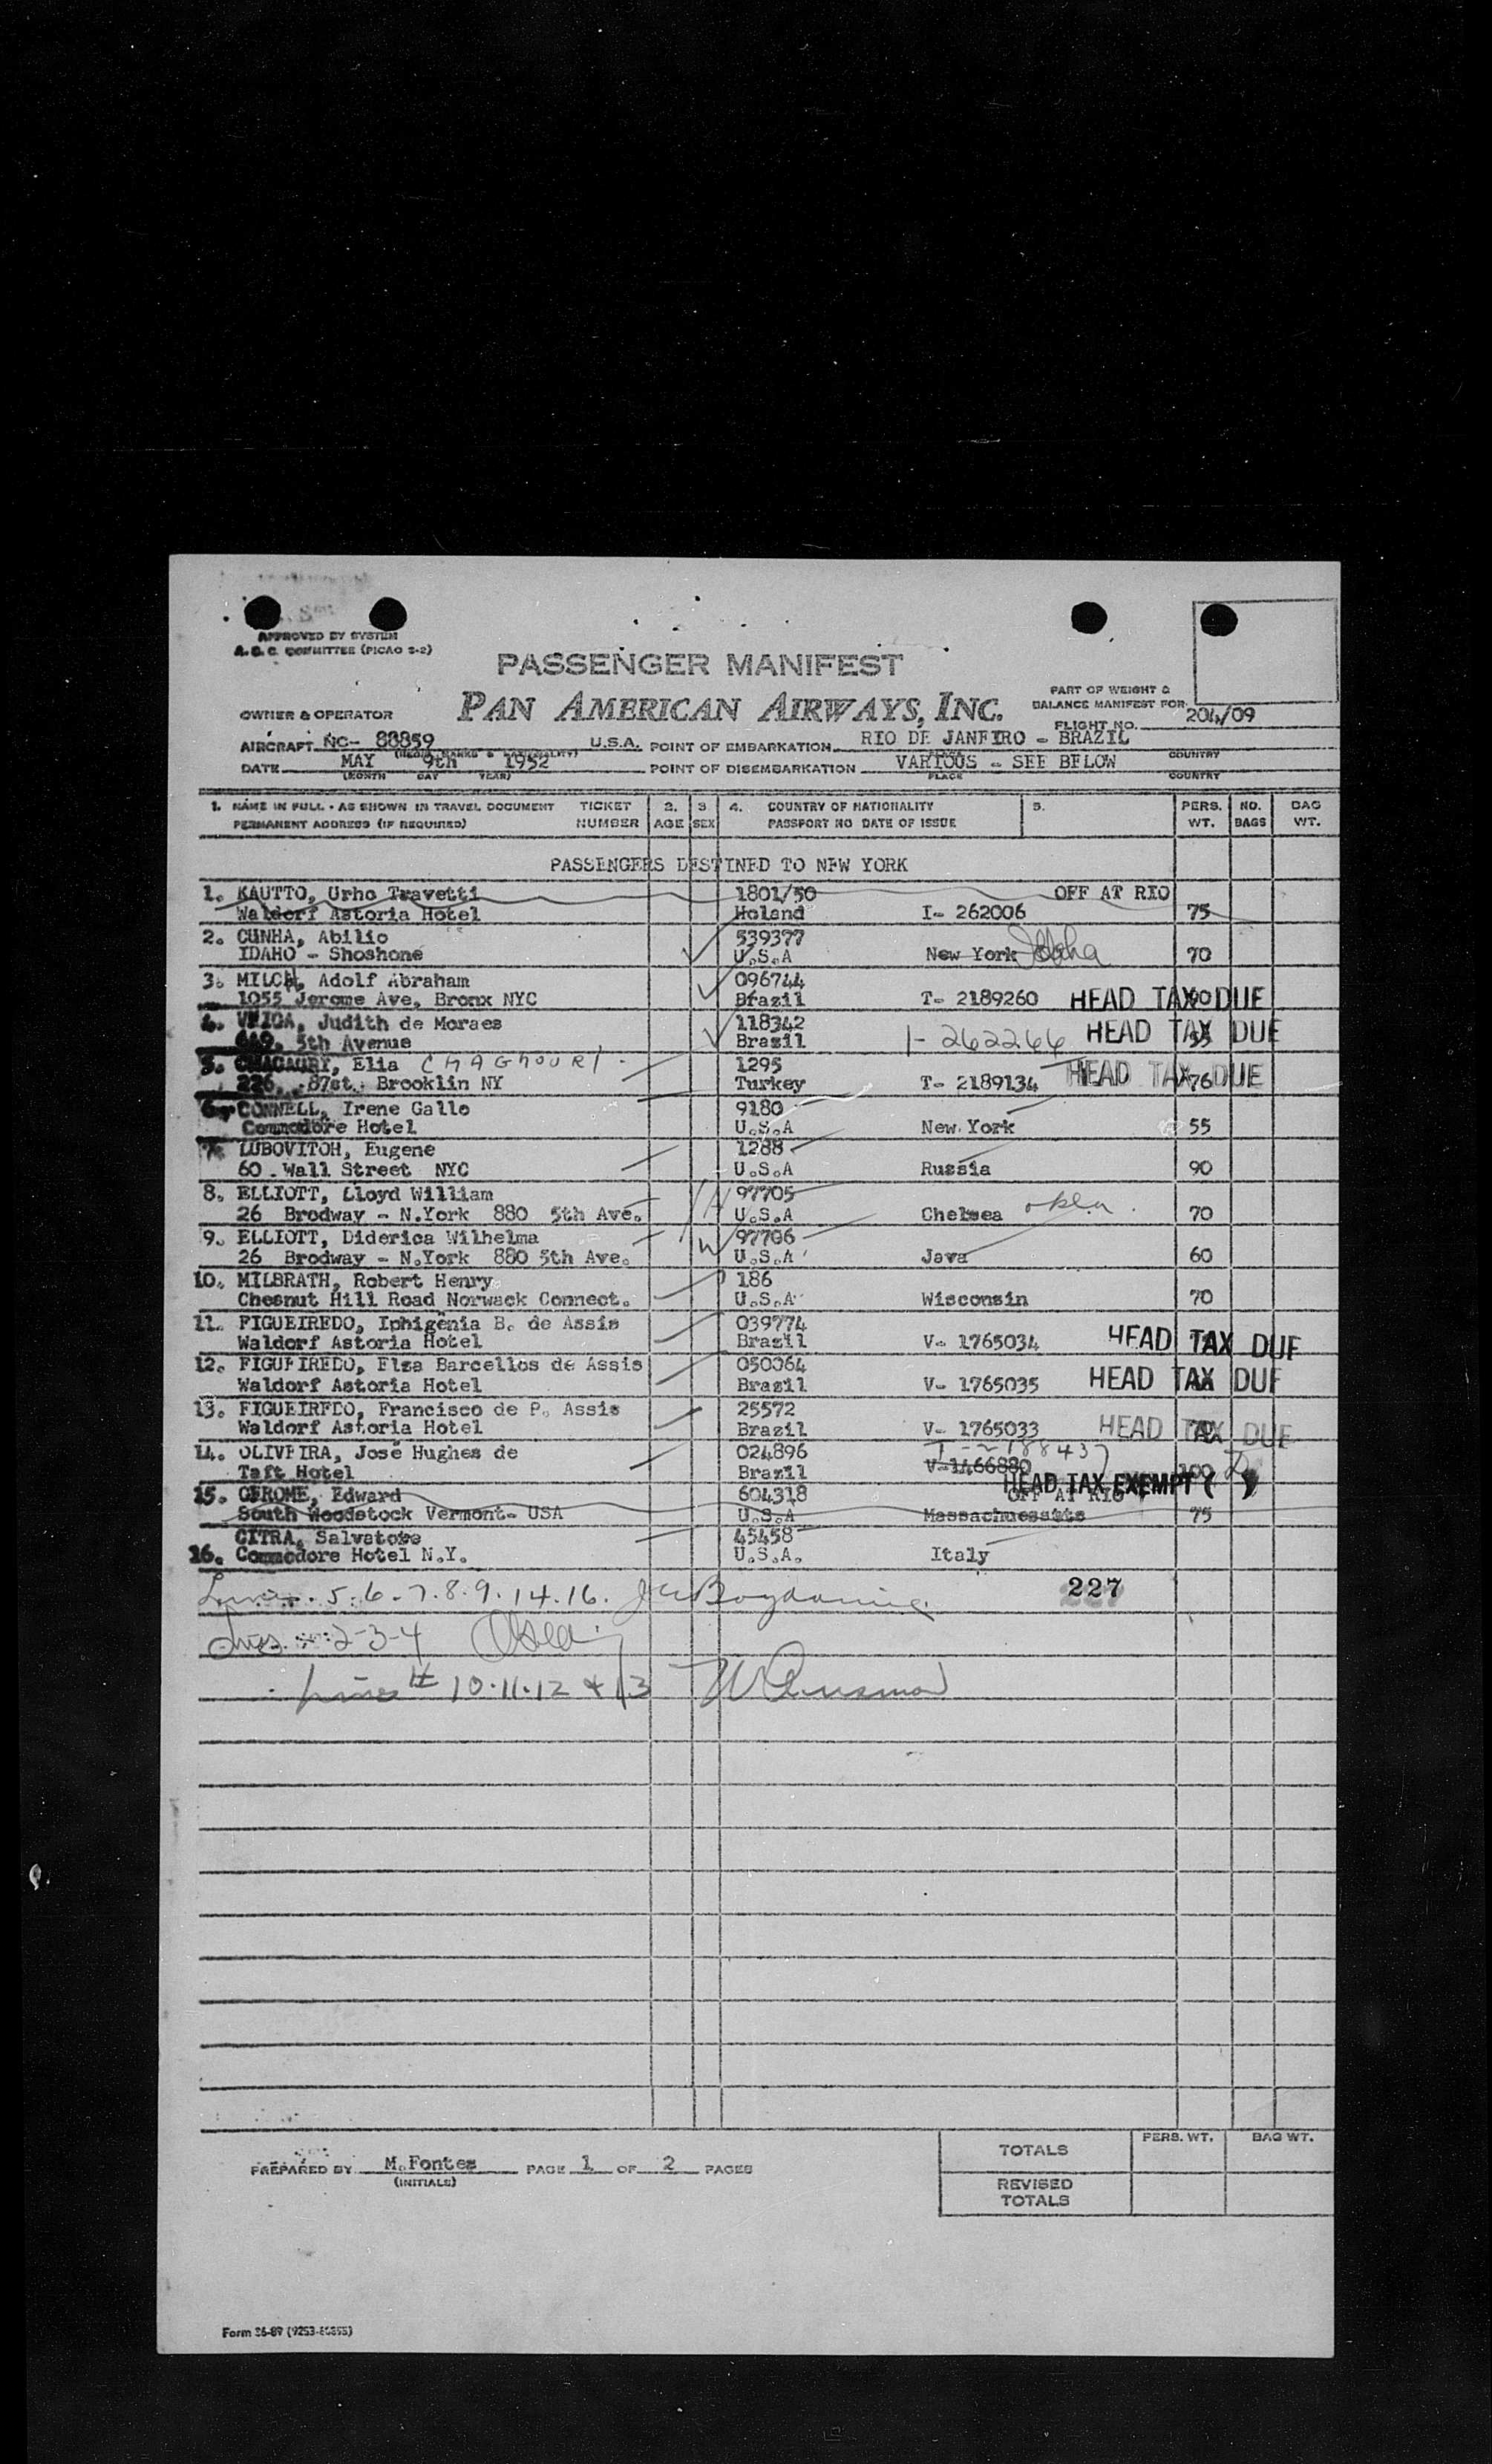 APPROVED BY SYSTEM
A.O.C. COMMITTEE (PICAO S-2)
PASSENGER MANIFEST
PAN AMERICAN AIRWAYS, INC.
OWNER & OPERATOR
PART OF WEIGHT &
BALANCE MANIFEST FOR
FLIGHT NO. 204/09
AIRCRAFT NC- 88859 U.S.A. POINT OF EMBARKATION RIO DE JANEIRO - BRAZIL
COUNTRY
DATE MAY 9th 1952 POINT OF DISEMBARKATION VARIOUS - SEE BELOW
(MONTH DAY YEAR) PLACE COUNTRY
1. NAME IN FULL - AS SHOWN IN TRAVEL DOCUMENT TICKET 2. 3. 4. COUNTRY OF NATIONALITY 5. PERS. NO. BAG
PERMANENT ADDRESS (IF REQUIRED) NUMBER AGE SEX PASSPORT NO DATE OF ISSUE WT. BAGS WT.
PASSENGERS DESTINED TO NEW YORK
1. KAUTTO, Urho Travetti 1801/50 OFF AT RIO
Waldorf Astoria Hotel Holand I- 262006 75
2. CUNHA, Abilio 539377
IDAHO - Shoshone U.S.A New York 70
3. MILCH, Adolf Abraham 096744
1055 Jerome Ave, Bronx NYC Brazil T- 2189260 HEAD TAX DUE
4. VEIGA, Judith de Moraes 118342
649. 5th Avenue Brasil I- 262266 HEAD TAX DUE
5. CHACAURY, Elia CHAGHOURI 1295
226. 87st. Brooklin NY Turkey T- 2189134 HEAD TAX DUE 76
6. CONNELL, Irene Gallo 9180
Commodore Hotel U.S.A New York 55
7. LUBOVITOH, Eugene 1288
60 Wall Street NYC U.S.A Russia 90
8. ELLIOTT, Lloyd William 97705
26 Brodway - N.York 880 5th Ave. U.S.A Chelsea 70
9. ELLIOTT, Diderica Wilhelma 97706
26 Brodway - N.York 880 5th Ave. U.S.A Java 60
10. MILBRATH, Robert Henry 186
Chesnut Hill Road Norwack Connect. U.S.A Wisconsin 70
11. FIGUEIREDO, Iphigênia B. de Assis 039774
Waldorf Astoria Hotel Brazil V- 1765034 HEAD TAX DUE
12. FIGUEIREDO, Elza Barcellos de Assis 050064
Waldorf Astoria Hotel Brasil V- 1765035 HEAD TAX DUE
13. FIGUEIREDO, Francisco de P. Assis 25572
Waldorf Astoria Hotel Brazil V- 1765033 HEAD TAX DUE
14. OLIVEIRA, José Hughes de 024896
Taft Hotel Brazil V-1466880 100
HEAD TAX EXEMPT ( )
15. GEROME, Edward 604318 OFF AT RIO
South Woodstock Vermont- USA U.S.A Massachuessits 75
CITRA, Salvatore 45458
16. Commodore Hotel N.Y. U.S.A. Italy
Lines 5.6.7.8.9.14.16. 227
Lines 2-3-4
Lines # 10.11.12 & 13
TOTALS PERS. WT. BAG WT.
PREPARED BY M.Fontes PAGE 1 OF 2 PAGES
(INITIALS)
REVISED
TOTALS